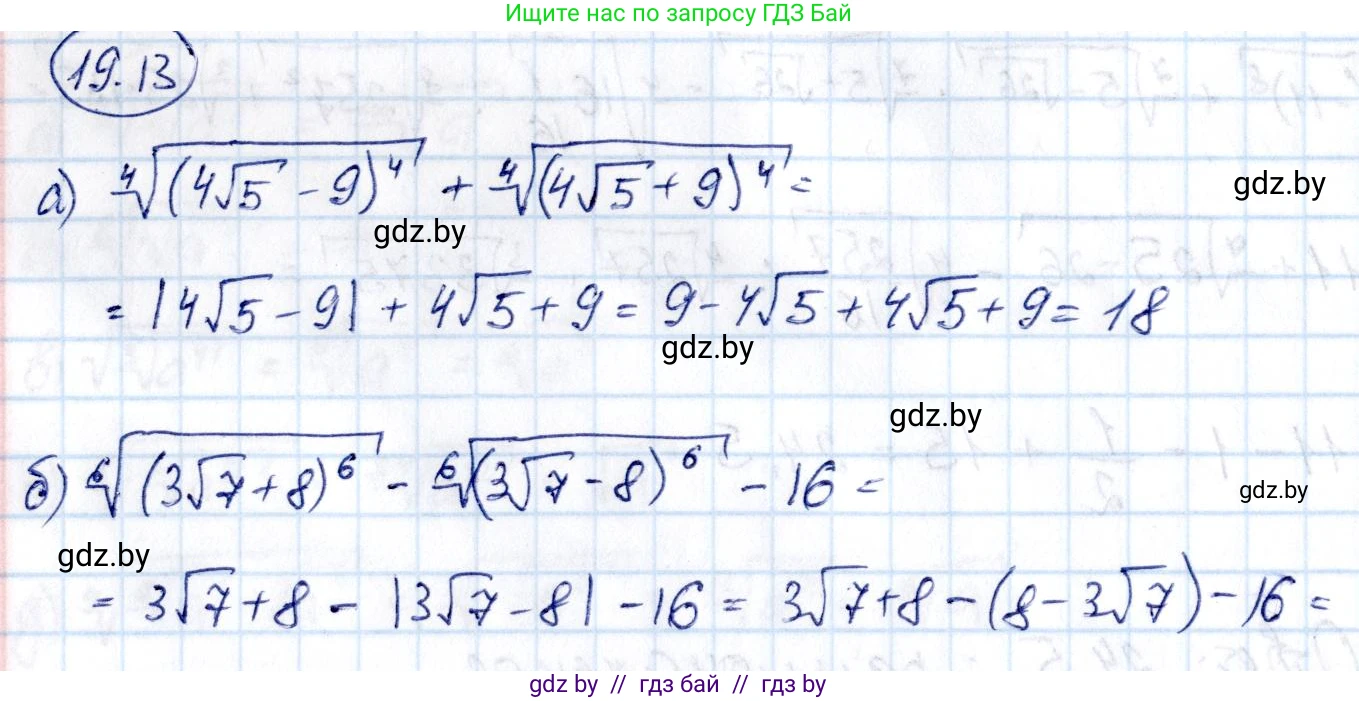 Ищите нас по запросу ГДЗ Бай
19.13
а) ⁴√((4√5 - 9)⁴) + ⁴√((4√5 + 9)⁴) =
gdz.by
gdz.by
= |4√5 - 9| + 4√5 + 9 = 9 - 4√5 + 4√5 + 9 = 18
gdz.by
gdz.by
б) ⁶√((3√7 + 8)⁶) - ⁶√((3√7 - 8)⁶) - 16 =
gdz.by
gdz.by
= 3√7 + 8 - |3√7 - 8| - 16 = 3√7 + 8 - (8 - 3√7) - 16 =
gdz by // гдз бай // гдз by